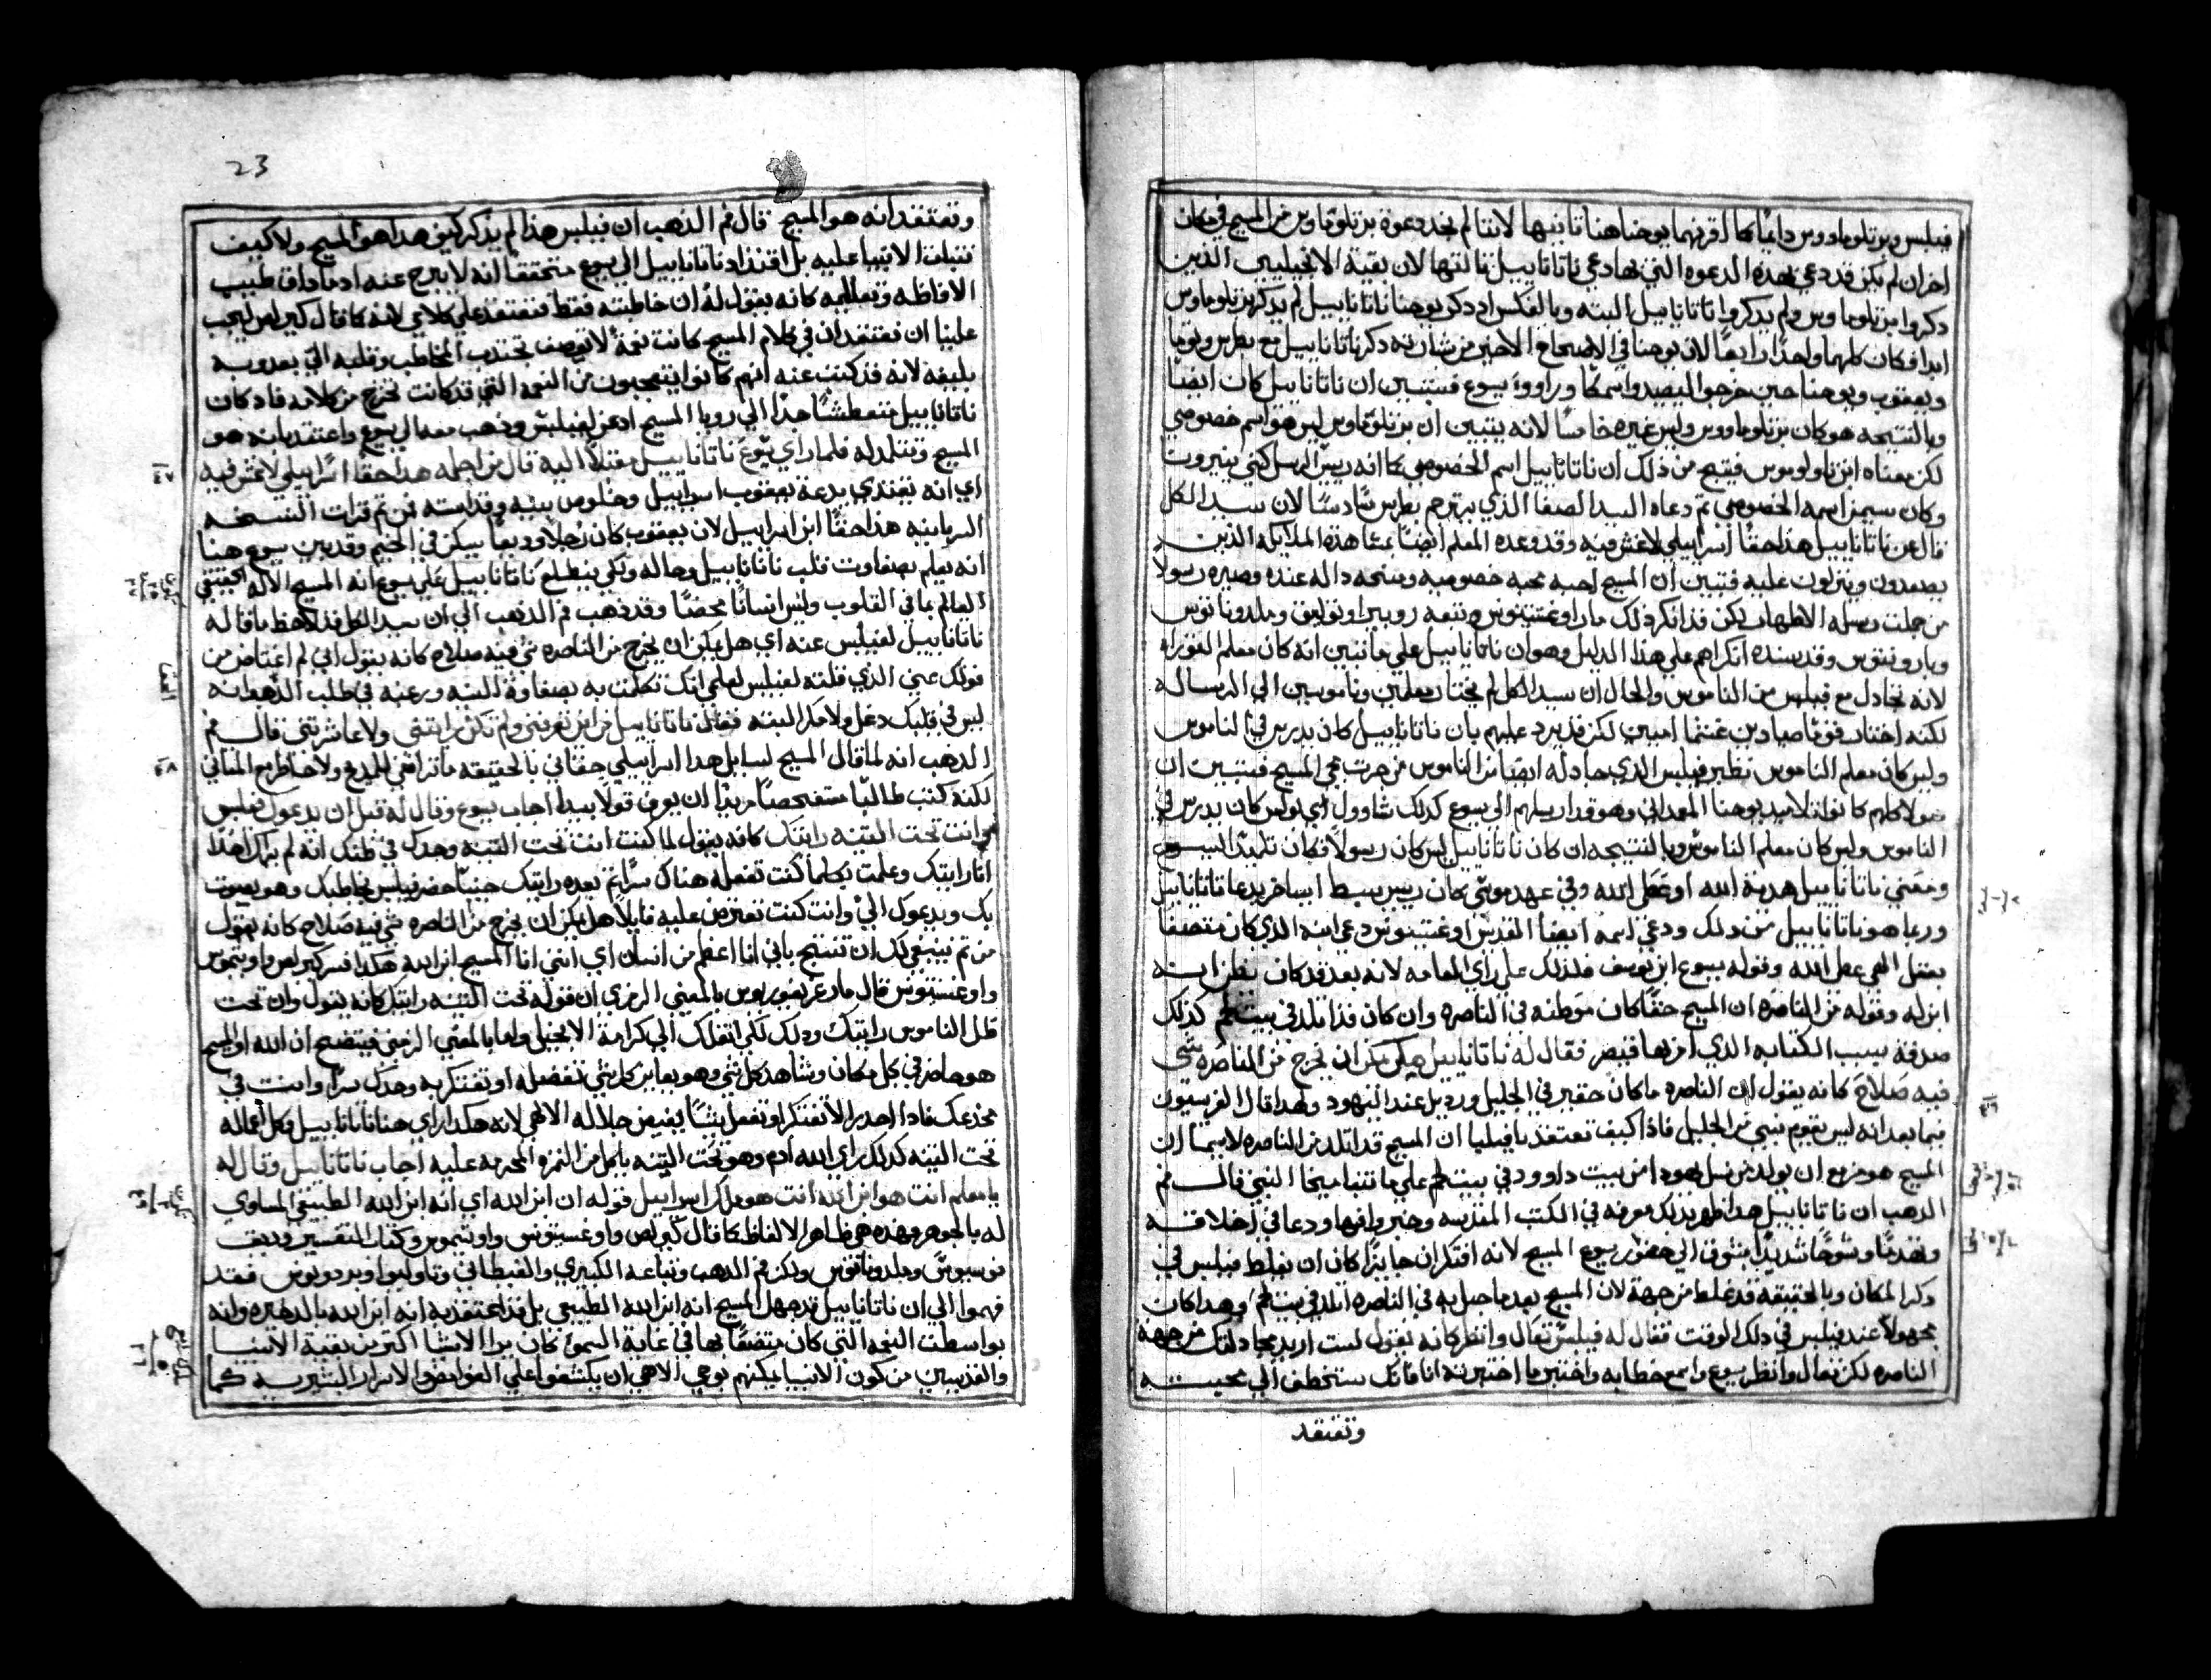 فيلبس وبرتلوماوس دايمًا كما اقرنهما يوحنا هنا ثانيها لاننا لم نجد دعوة برتلوماوس من المسيح في مكان
اخر ان لم يكن قد دعي بهذه الدعوه التي بها دعي ناتانابيل ثالثها لان بقية الانجيليين الذين
دكروا برتلوماوس ولم يدكروا ناتانابيل البته وبالعكس اد دكر يوحنا ناتانابيل لم يدكر برتلوماوس
ابدا فكان كلهما واحدًا رابعًا لان يوحنا في الاصحاح الاخير من بشارته دكر ناتانابيل مع بطرس وتوما
ويعقوب ويوحنا حين خرجوا ليصيدوا سمكًا وراووا يسوع فيتبين ان ناتانابيل كان ايضا
وبالنتيجه هو كان برتلوماوس وليس غيره خامسًا لانه يتبين ان برتلوماوس ليس هو اسم خصوصي
لكن معناه ابن تولوموس فينتج من ذلك ان ناتانابيل اسم الخصوصي كما انه ريس الرسل كني ببنيرونا
وكان سيمن اسمه الخصوصي ثم دعاه السيد الصفا الذي يترجم بطرس سادسًا لان سيد الكل
قال عن ناتانابيل هذا حقًا اسراييلي لا غش فيه وقد وعده المعلم ايضًا بمشاهدة الملايكه الذين
يصعدون وينزلون عليه فتبين ان المسيح احبه محبه خصوصيه ومنحه داله عنده وصيره رسولا
من جملت رسله الاطهار لكن قد انكر ذلك مار اوغستينوس وتبعه روبيرا وتوليق وملدوناتوس
وبارونيوس وقد يسند انكراهم علي هذا الدليل وهو ان ناتانابيل علي ما تبين انه كان معلم التوراه
لانه تجادل مع فيلبس من الناموس والحال ان سيد الكل لم يختار معلمين وناموسيين الي الرساله
لكنه اختار قومًا صيادين غشمًا اميين لكن قد يرد عليهم بان ناتانابيل كان يدرس في الناموس
وليس كان معلم الناموس نظير فيلبس الذي جادله ايضا من الناموس من جرت مجي المسيح فيتبين ان
هولا كلهم كانوا تلاميد يوحنا المعمداني وهو قد ارسلهم الي يسوع كدلك شاوول اي بولس كان يدرس في
الناموس وليس كان معلم الناموس وبالنتيجه ان كان ناتانابيل ليس كان رسولاً فكان تلميدًا ليسوع
ومعني ناتانابيل هدية الله او عطى الله وفي عهد موسي كان ريس سبط ايساخر يدعا ناتانابيل
وربما هو ناتانابيل من دلك ودعي اسمه ايضا المقدس اوغستينوس دعي ابنه الذي كان متصفا
بعقل الهي عطى الله وقوله يسوع ابن يوسف فلذلك علي راي العامه لانه بعد قد كان يظن انه
ابن له وقوله من الناصره ان المسيح حقًا كان موطنه في الناصره وان كان قد اتلد في بيت لحم كدلك
صدفة بسبب الكتابه الذي امر بها قيصر فقال له ناتانابيل هل يمكن ان يخرج من الناصره شي
فيه صلاح كانه يقول ان الناصره مكان حقير في الجليل ورديل عند اليهود ولهدا قال الفريسيون
فيما بعد انه ليس يقوم نبي من الجليل فاذا كيف تعتقد يا فيلبا ان المسيح قد اتلد من الناصره لا سيما ان
المسيح هو مزمع ان يولد من نسل يهودا من بيت داوود في بيت لحم علي ما تنبا ميخا النبي قال فم
الدهب ان ناتانابيل هدا ظهر بدلك معرفه في الكتب المقدسه وخبر وافر ودعا في اخلاقه
وتقدمًا وشوقًا شديدًا يشوق الي حضور يسوع المسيح لانه افتكر ان جايزًا كان ان يغلط فيلبس في
دكر المكان وبالحقيقه قد غلط من جهة لان المسيح بعد ما حبل به في الناصره اتلد في بيت لحم وهدا كان
مجهولاً عند فيلبس في دلك الوقت فقال له فيلبس تعال وانظر كانه يقول لست اريد مجادلتك من جهة
الناصره لكن تعال وانظر يسوع واسمع خطابه واختبر ما اختبرته انا فانك ستخطف الي محبته
وتعتقد
23
وتعتقد انه هو المسيح قال فم الدهب ان فيلبس هذا لم يذكر كيف هدا هو المسيح ولا كيف
تنبات الانبيا عليه بل اقتاد ناتانابيل الي يسوع متحققا انه لا يبرح عنه ادما داق طيب
الافاظه وتعاليمه كانه يقول له ان خاطبته فقط فتعتقد علي كلامي لانه كما قال كيرلس يجب
علينا ان نعتقد ان في كلام المسيح كانت نعمةً لا توصف تجتدب المخاطب وقلبه الي بعدوبه
بليغه لانه قد كتب عنه انهم كانوا يتعجبون من النعمه التي قد كانت تخرج من كلامه فاد كان
ناتانابيل متعطشًا جدًا الي رويا المسيح ادعن لفيلبس ودهب معه الي يسوع واعتقد بانه هو
المسيح وتتلمد له فلما راي يسوع ناتانابيل مقبلاً اليه قال من اجله هدا حقًا اسراييلي لا غش فيه
اي انه يقتدي بدعة يعقوب اسراييل وخلوص نيته وقداسته فمن ثم قرات النسخه
السريانيه هدا حقًا ابن اسراييل لان يعقوب كان رجلاً وديعاً يسكن في الخيم وقد بين يسوع هنا
انه يعلم بصفاوت قلب ناتانابيل وحاله ولكي ينطلع ناتانابيل علي يسوع انه المسيح الاله الحقيقي
العالم بما في القلوب وليس انسانًا محضًا وقد دهب فم الدهب الي ان سيد الكل قد لاحظ ما قاله
ناتانابيل لفيلبس عنه اي هل يمكن ان يخرج من الناصره شي فيه صلاح كانه يقول اني لم اغتاض من
قولك عني الذي قلته لفيلبس لعلمي انك تكلمت به بصفاوة النيه ورغبه في طلب الدهـ انه
ليس في قلبك دغل ولا مكر البته فقال ناتانابيل من اين تعرفني ولم تكن رايتني ولا عاشرتني قال فم
الدهب انه لما قال المسيح لسايل هدا اسراييلي حقاني بالحقيقه ما تراخي للمديح ولا خاطر مع المثاني
لكنه كتب طالبًا متفحصًا مريدًا ان يعرف قولاً بيداً اجاب يسوع وقال له قبل ان يدعوك فيلبس
وانت تحت التينه رايتك كانه يقول لما كنت انت تحت التينه وحدك في ظنك انه لم يراك احدًا
انا رايتك وعلمت بكلما كنت تفعله هناك سرًا ثم بعده رايتك حينما حضر فيلبس يخاطبك وهو يصوت
بك ويدعوك الي وانت كنت تعترض عليه قايلاً هل يمكن ان يخرج من الناصره شي فيه صلاح كانه يقول
من ثم ينبغي لك ان تنتج باني انا اعظم من انسان اي انني انا المسيح ابن الله هكدا فسر كيرلس واوتيموس
واوغستينوس قال مار غريغوريوس بالمعني الرمزي ان قوله تحت التينه رايتك كانه يقول وان تحت
ظل الناموس رايتك ودلك لكي انقلك الي كرامة الانجيل واما بالمعني الرمزي فيتضح ان الله او المسيح
هو حاضر في كل مكان وشاهد كل شي وهو يعاين كل شي تفعله او تفتكر به وحدك سرًا وانت في
مخدعك فادا احدر الا تفتكر او تفعل شيًا يغيض جلاله الالهي لانه هكدا راي هنا ناتانابيل وكل افعاله
تحت التينه كدلك راي الله ادم وهو تحت التينه ياكل من الثمره المحرمه عليه اجاب ناتانابيل وقال له
يا معلم انت هو ابن الله انت هو ملك اسراييل قوله ان ابن الله اي انه ابن الله الطبيعي المساوي
له بالجوهر وهذه هي ظاهر الالفاظ كما قال كيرلس واوغستينوس واوتيموس وكدلك
وملدوناتوس ولكن فم الدهب وتباعه الكبيري والقبطاني وتاوليوا وبردونوس فقد
فهموا الي ان ناتانابيل قد جهل المسيح انه ابن الله الطبيعي بل قد اعتقد به انه ابن الله بالدهيره وانه
بواسطت النعمه التي كان متصفًا بها في غاية السمو كان من الانشا اكتر من بقية الانبيا
والقديسين من كون الانبيا يمكنهم بوحي الاهي ان يكشفوا علي الغوامض والاسرار البشريه كما